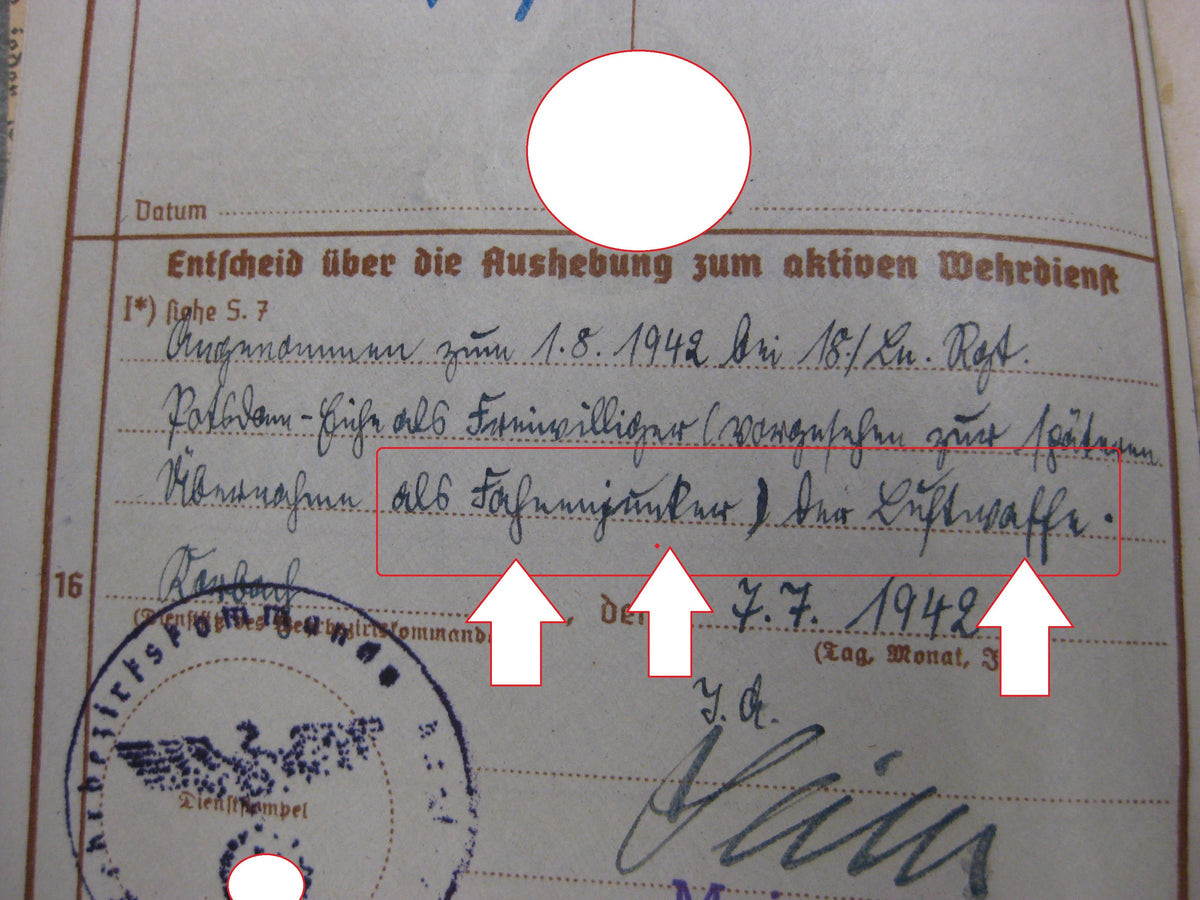 Datum
Entscheid über die Aushebung zum aktiven Wehrdienst
I*) siehe S. 7
Angenommen zum 1.8.1942 bei 18./Ln. Rgt.
Potsdam-Eiche als Freiwilliger (vorgesehen zur späteren
Übernahme als Fahnenjunker) der Luftwaffe.
16
Korbach
(Dienstsitz des Wehrbezirkskommandos
, den 7.7. 1942
(Tag, Monat,
Dienststempel
I.A.